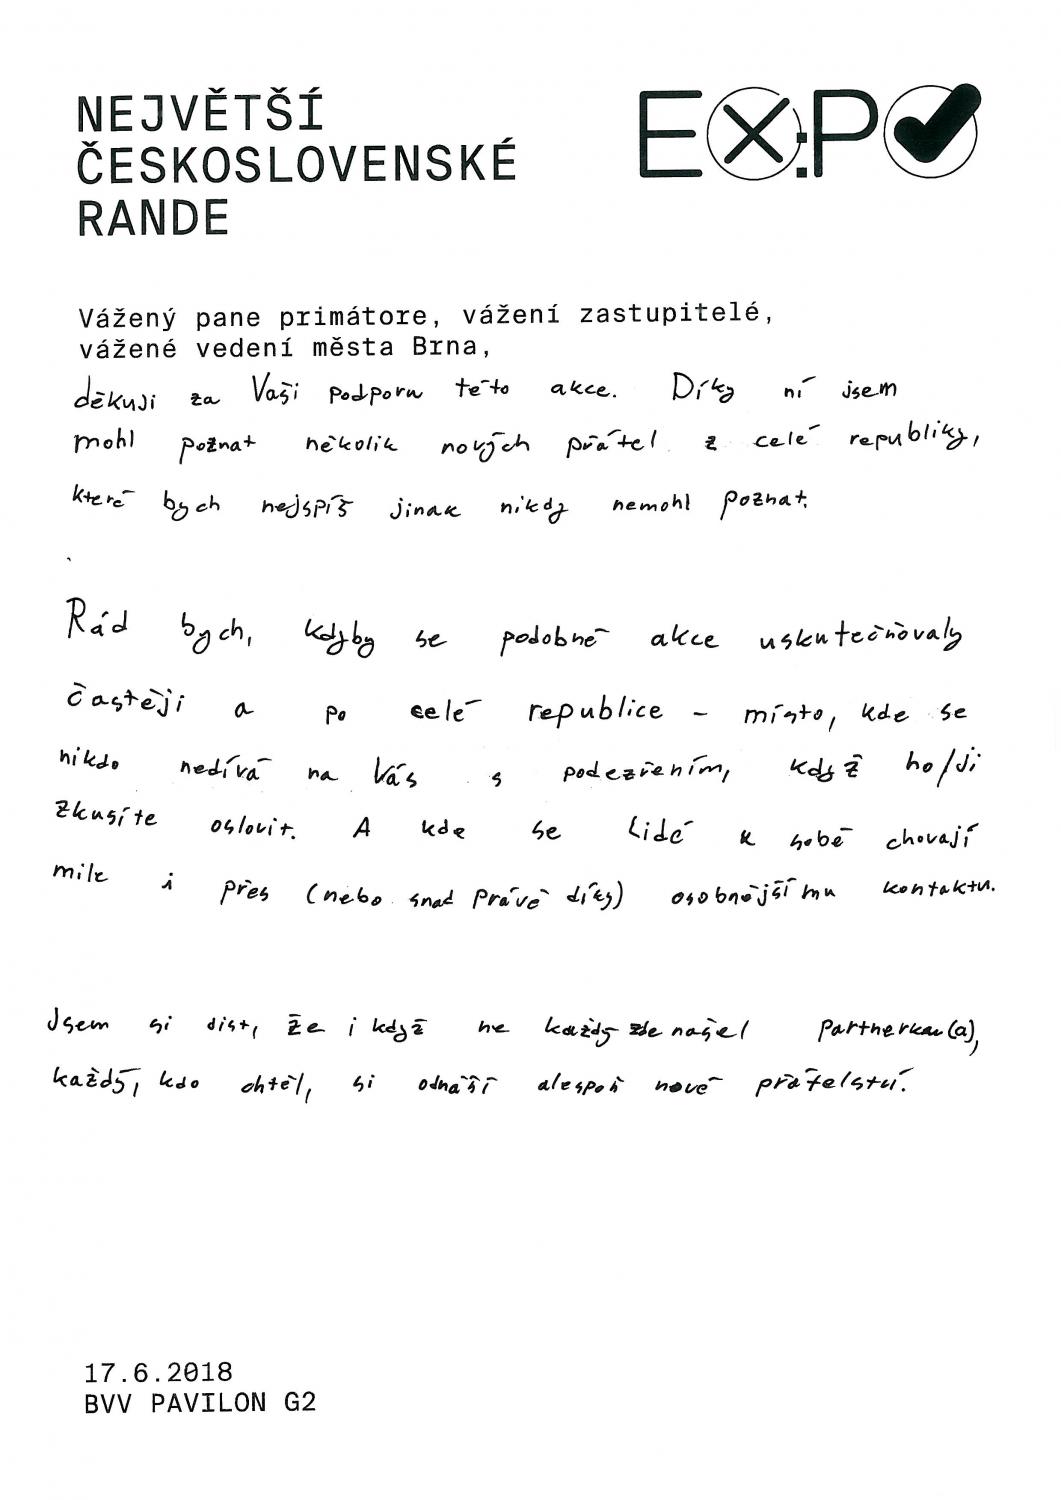 NEJVĚTŠÍ
ČESKOSLOVENSKÉ
RANDE
EX:PO
Vážený pane primátore, vážení zastupitelé,
vážené vedení města Brna,
děkuji za Vaši podporu této akce. Díky ní jsem
mohl poznat několik nových přátel z celé republiky,
které bych nejspíš jinak nikdy nemohl poznat.
Rád bych, kdyby se podobné akce uskutečňovaly
častěji a po celé republice – místo, kde se
nikdo nedívá na Vás s podezřením, když ho/ji
zkusíte oslovit. A kde se lidé k sobě chovají
mile i přes (nebo snad právě díky) osobnějšímu kontaktu.
Jsem si jist, že i když ne každý zde našel partnerku(a),
každý, kdo chtěl, si odnáší alespoň nové přátelství.
17.6.2018
BVV PAVILON G2